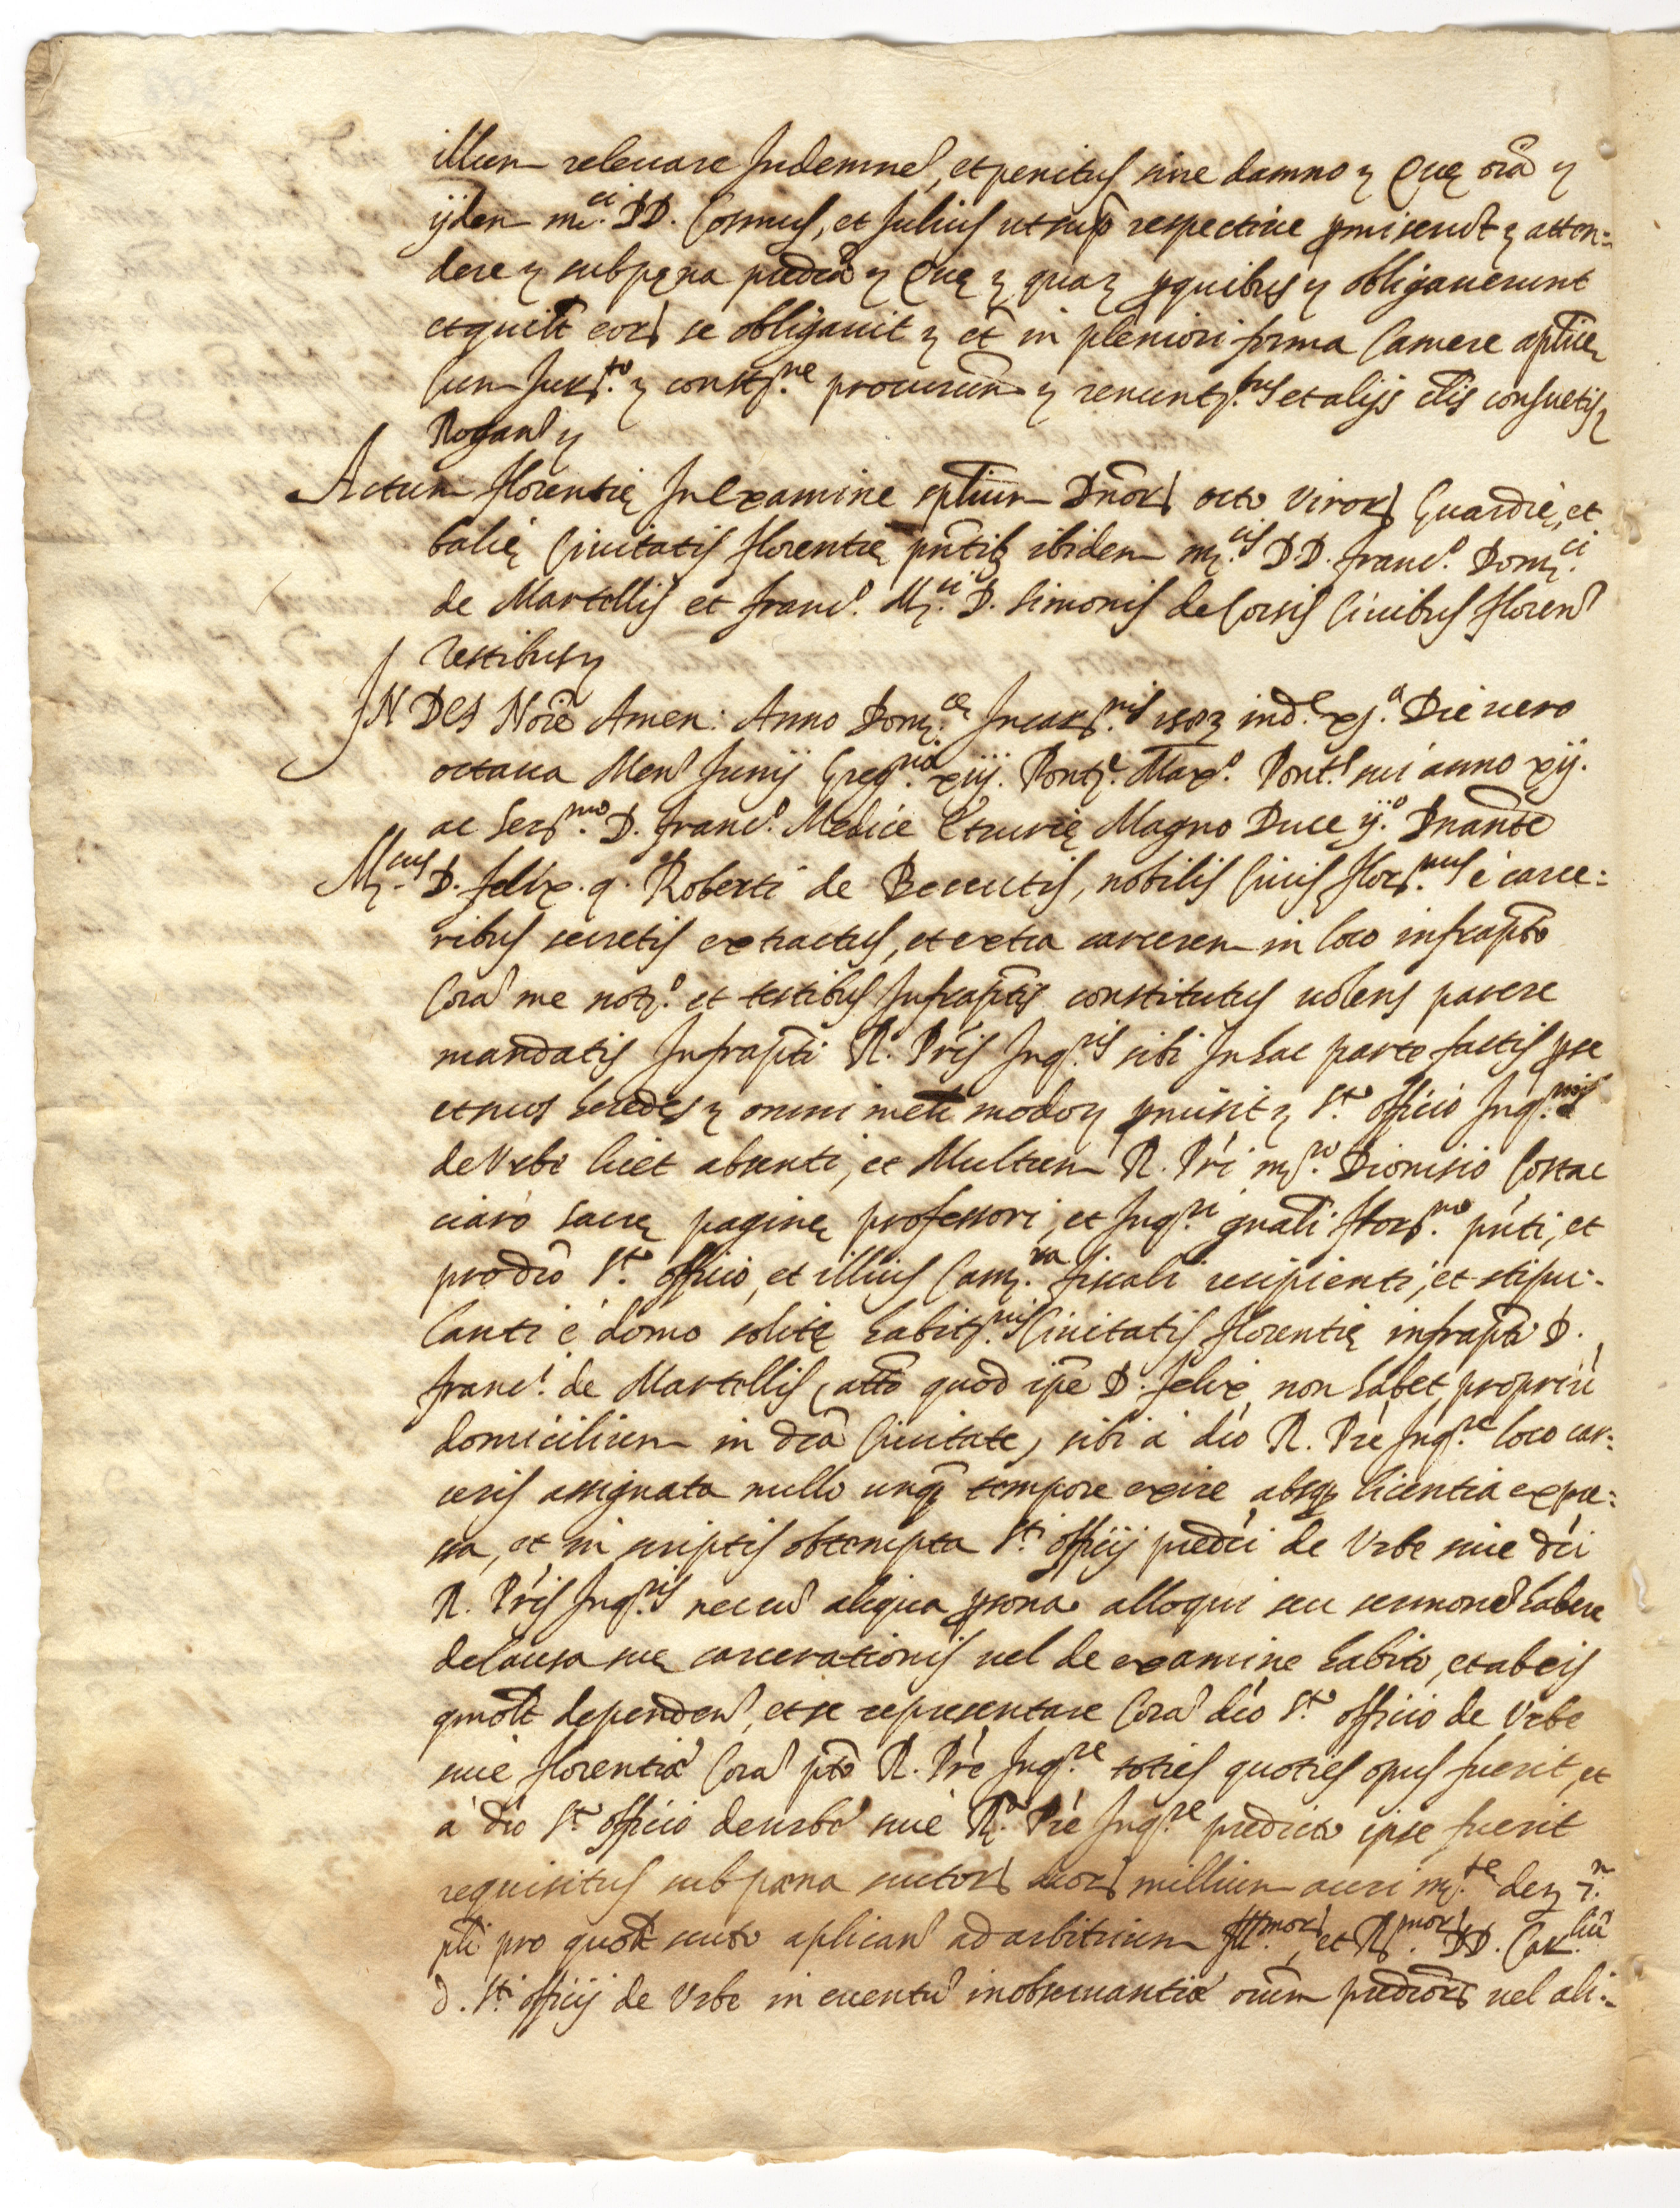 illum releuare Indemne, et penitus sine damno ꝫ Quę oia ꝫ
ijdem m.ci DD. Cosmus, et Julius ut sup respectiue pmiserut ꝫ atten:
dere ꝫ sub pęna predca ꝫ Quę ꝫ quaꝫ p quibus ꝫ obligauerunt
et quilt eor se obligauit ꝫ et in pleniori forma Camere aplice
Cum Jur.to ꝫ const.ne procurum ꝫ renunt.bus et alijs clis consuetis ꝫ
Rogan ꝫ
Actum florentię In Examine spltium Dnor octo viror Guardie, et
balię Ciuitatis florentię pntib ibidem m.cis DD. franc.o Dom.ci
de Martellis et franc.o M.ci D. simonis de Corsis Ciuibus floren
testibus ꝫ
IN DEI Noie Amen: Anno Dom.ce Incar.nis ind.e xj.a Die uero
octaua Mens Junij Greg.rio xiij. Pont.e Max.o Pont.s sui anno xij.
ac Ser.mo D. franc.o Medice Etrurię Magno Duce ij.o Dnante
M.cus D. felix q. Roberti de Beccutis, nobilis Ciuis flor.nus è carce:
ribus secretis extractus, et extra carcerem in loco infrapto
Cora me not.o et testibus Infraptis constitutus uolens parere
mandatis Infrapti R. Pris Inq.ris sibi In hac parte factis p se
et suos heredes ꝫ omni meli modo ꝫ pmisit ꝫ S.to officio Inq.nis
de Vrbe licet absenti, et Multum R. Pri m.ro Dionisio Costac
ciaro sacrę paginę professori, et Inq.ri gnali flor.no pnti, et
pro dco S.to officio, et illius Cam.ra fiscali recipienti, et stipu:
lanti è domo solitę habit.nis Ciuitatis florentię infrapti D.
franc.i de Martellis, atto quod ipe D. felix non habet propriu
domicilium in dca Ciuitate, sibi à dco R. Pre Inq.re loco car:
ceris assignata nullo unq tempore exire absq licentia expre:
sa, et in scriptis obtempta S.ti officij predci de Vrbe siue dci
R. Pris Inq.ris nec cu aliqua psona alloqui seu sermone habere
de causa suę carcerationis uel de examine habito, et ab eis
qmolt dependen, et se representare Cora dco S.to officio de Vrbe
siue florentia Cora pto R. Pre Inq.re toties quoties opus fuerit, et
à dco S.to officio de urbe siue R. Pre Inq.re predicto ipse fuerit
requisitus sub pęna scutor duor millium auri m.te de ꝫ
pti pro quolt scuto aplican ad arbitrium Ill.mor, et R.mor DD. Car.lium
d. S.ti officij de Vrbe in euentu inobseruantia oium predcor uel ali: